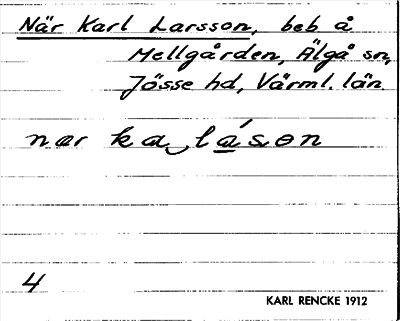 När Karl Larsson, beb å
Mellgården, Älgå sn,
Jösse hd, Värml. län.
nar ka‿lása̱on
4
KARL RENCKE 1912